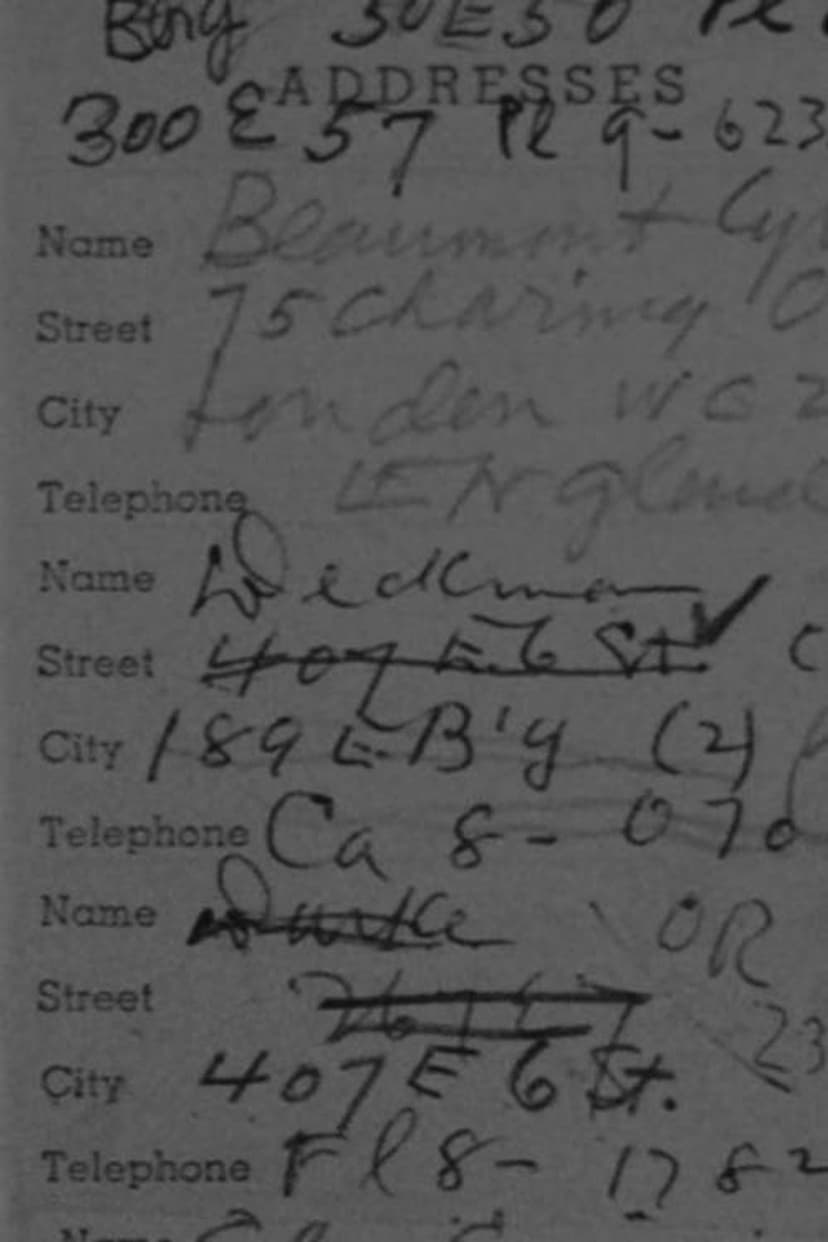 30E50
ADDRESSES
300 E 57 Pl 9-623
Name Beaumont
Street 75 Charing
City London WC2
Telephone England
Name
Street 407 E 6 St.
City 189 E B'y (2)
Telephone Ca 8-070
Name OR
Street
23
City 407 E 6 St.
Telephone Fl 8-1782
Name